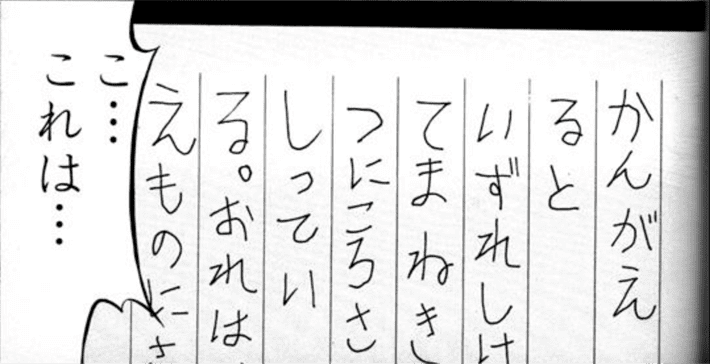 かんがえ
ると
いずれしけ
てまねき
つにころさ
しってい
る。おれは
えものにさ
こ…
これは…